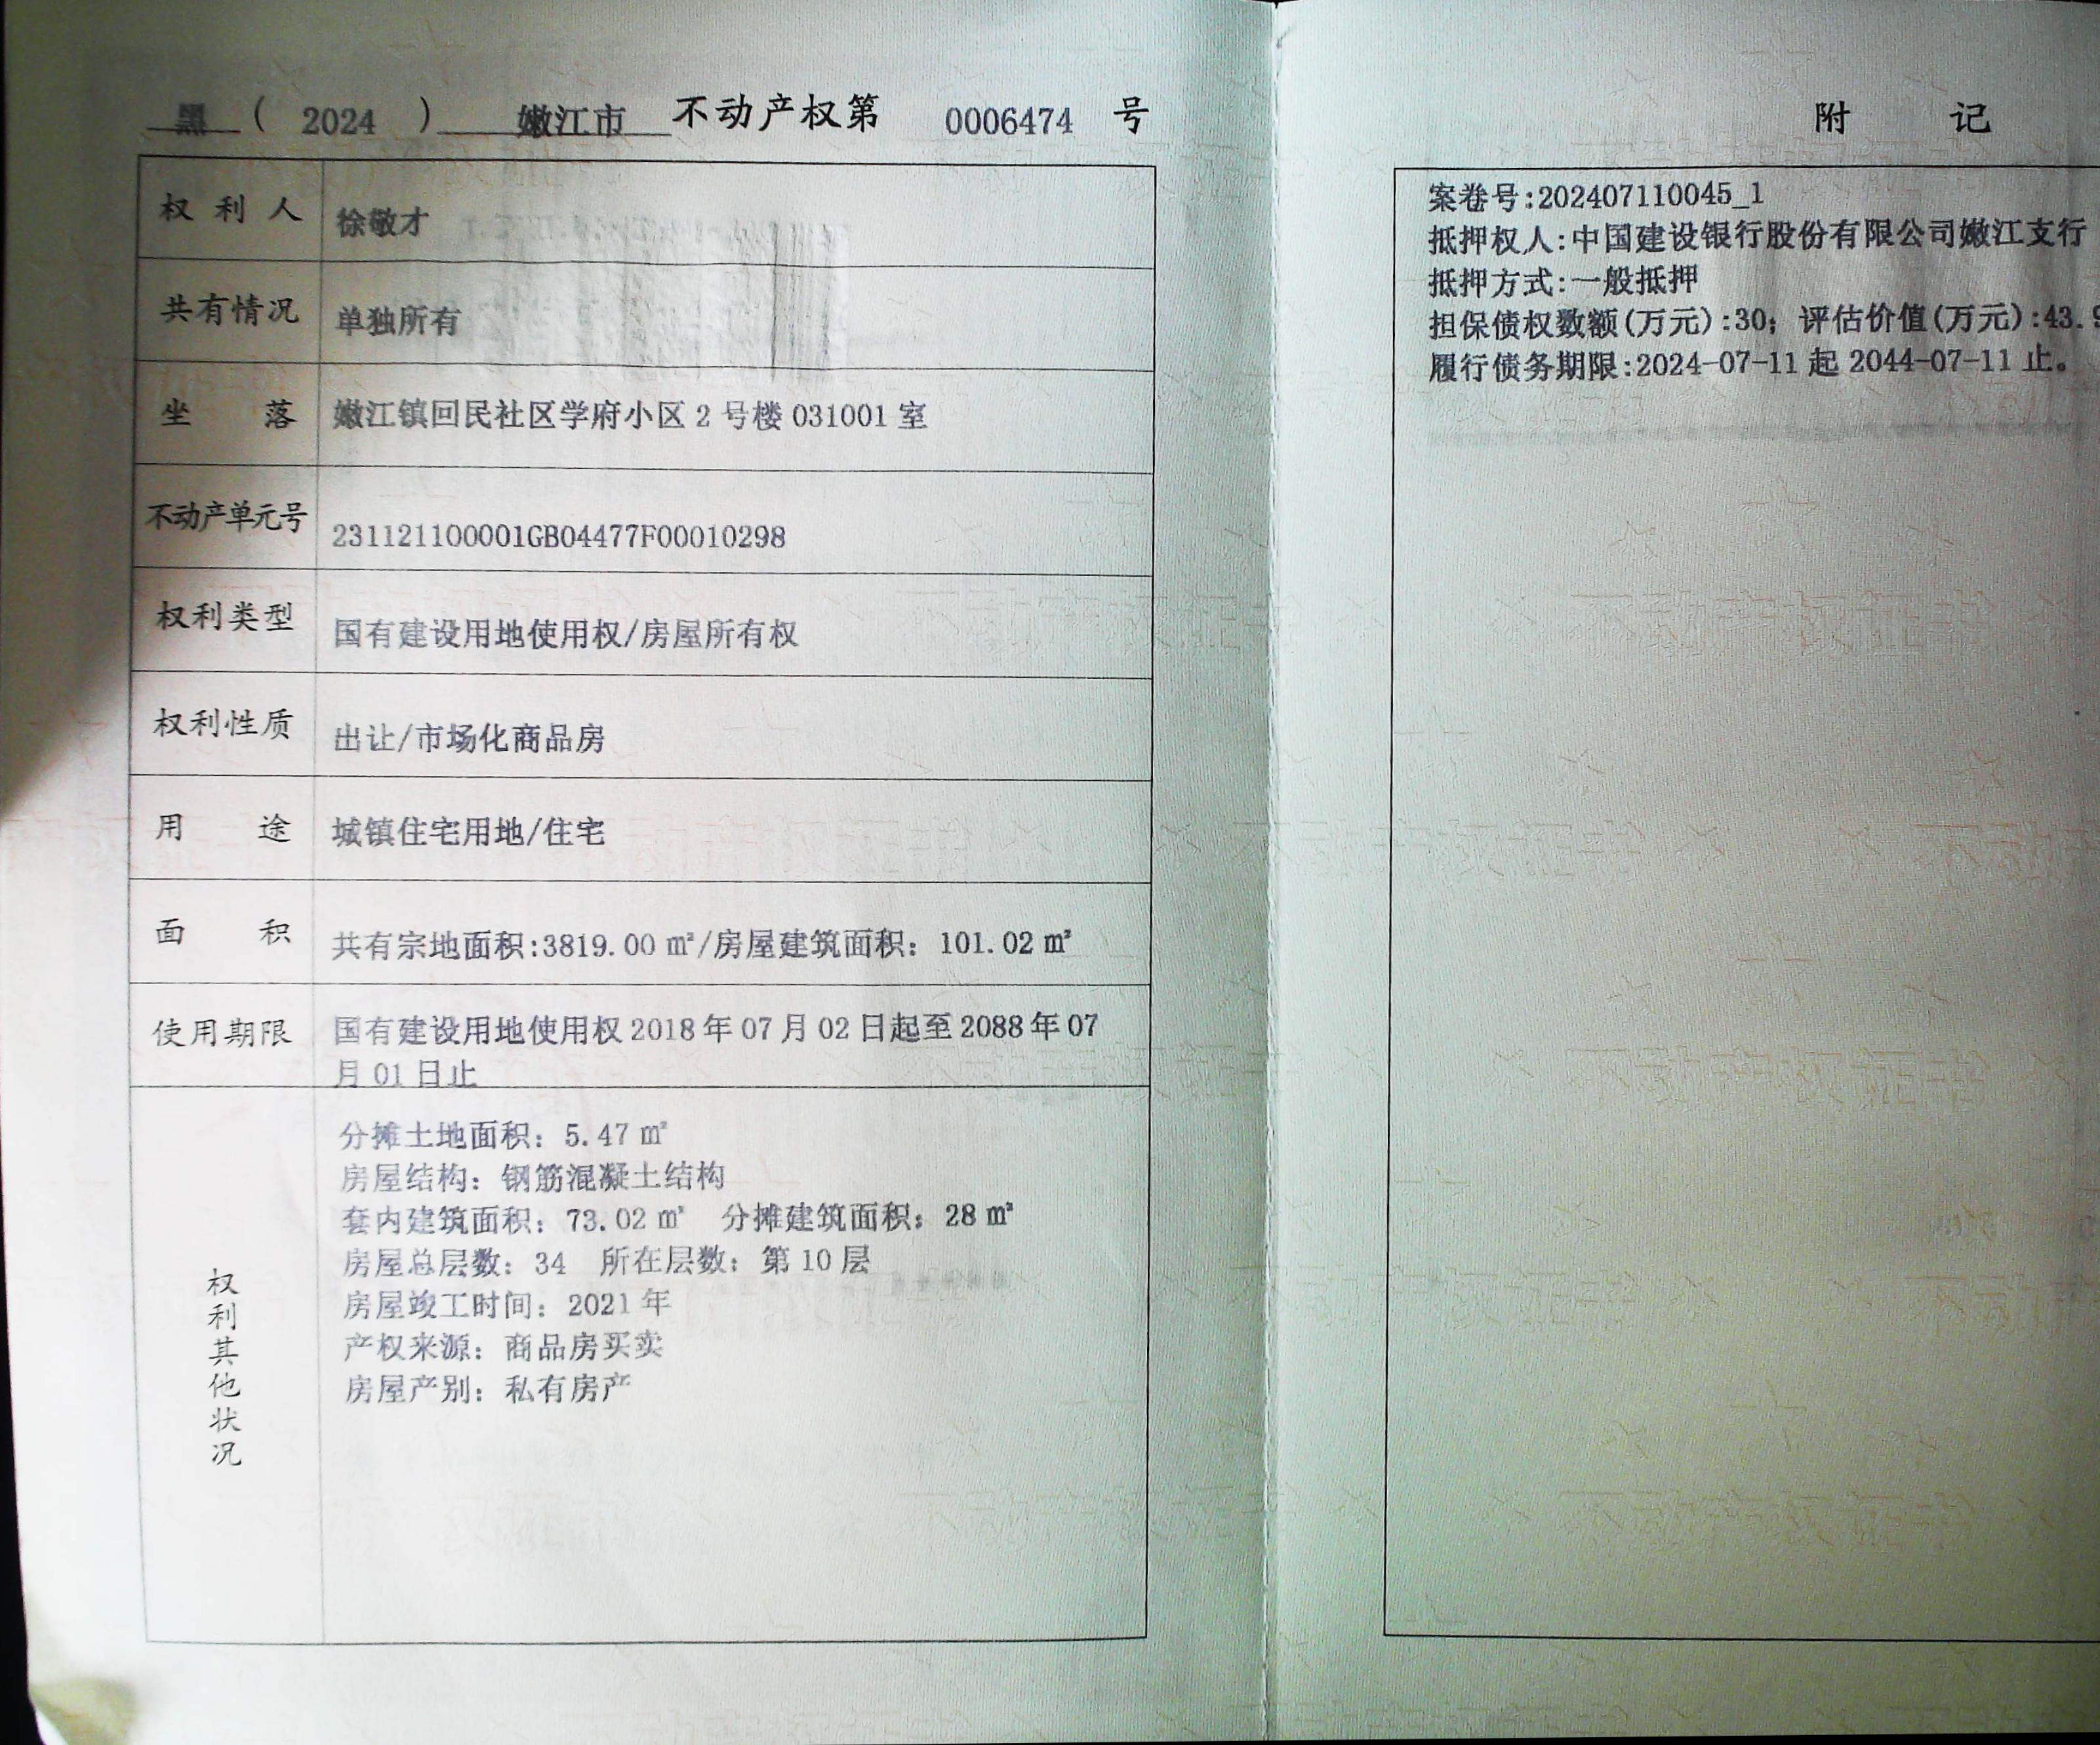 黑 ( 2024 ) 嫩江市 不动产权第 0006474 号
权利人 徐敬才
共有情况 单独所有
坐落 嫩江镇回民社区学府小区 2 号楼 031001 室
不动产单元号 231121100001GB04477F00010298
权利类型 国有建设用地使用权/房屋所有权
权利性质 出让/市场化商品房
用途 城镇住宅用地/住宅
面积 共有宗地面积:3819.00 ㎡/房屋建筑面积：101.02 ㎡
使用期限 国有建设用地使用权 2018 年 07 月 02 日起至 2088 年 07
月 01 日止
权利其他状况
分摊土地面积：5.47 ㎡
房屋结构：钢筋混凝土结构
套内建筑面积：73.02 ㎡ 分摊建筑面积：28 ㎡
房屋总层数：34 所在层数：第 10 层
房屋竣工时间：2021 年
产权来源：商品房买卖
房屋产别：私有房产
附 记
案卷号:202407110045_1
抵押权人:中国建设银行股份有限公司嫩江支行
抵押方式:一般抵押
担保债权数额(万元):30；评估价值(万元):43.9
履行债务期限:2024-07-11 起 2044-07-11 止。